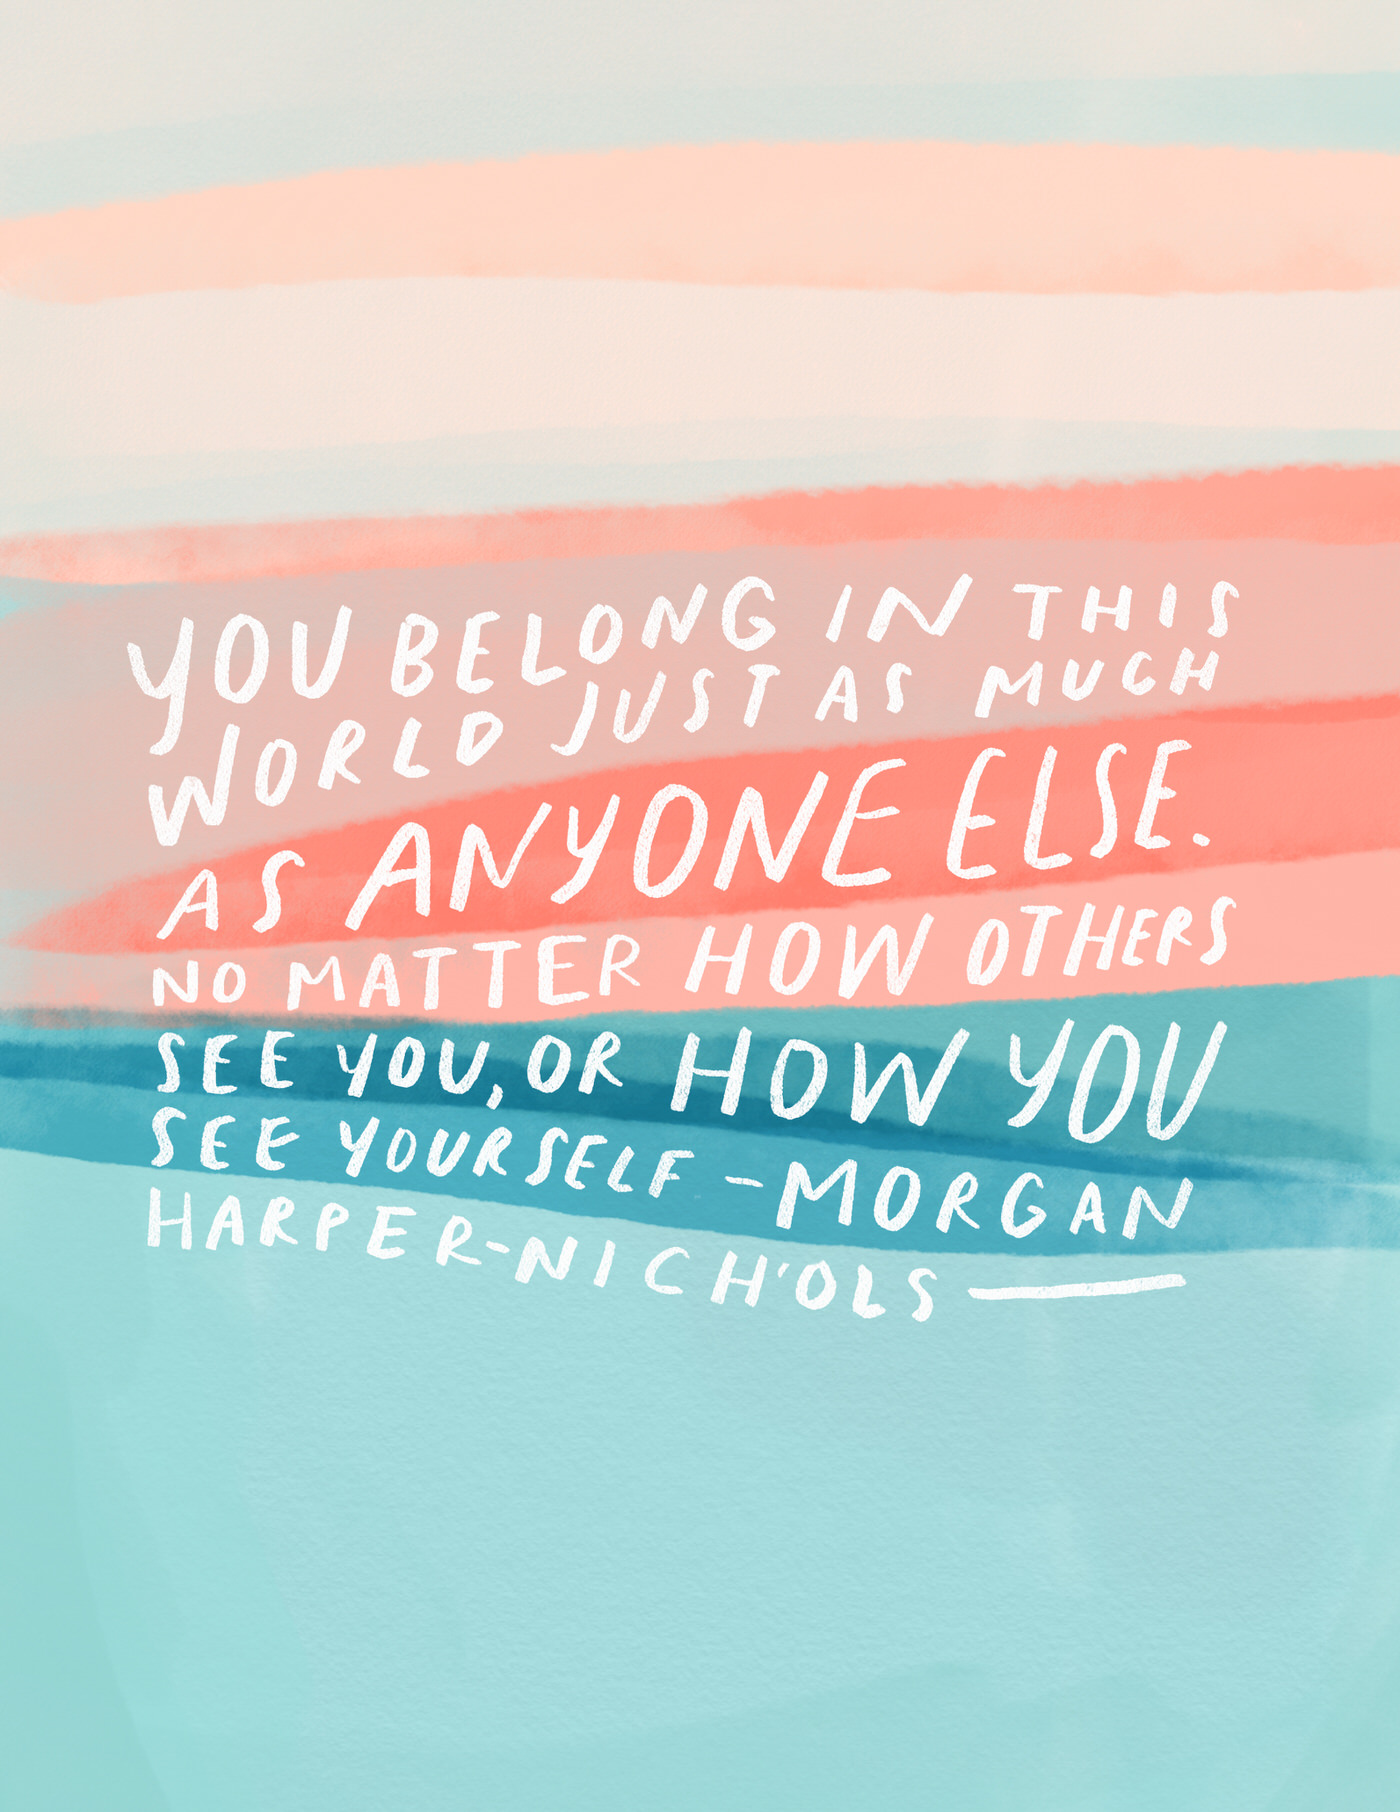 YOU BELONG IN THIS
WORLD JUST AS MUCH
AS ANYONE ELSE.
NO MATTER HOW OTHERS
SEE YOU, OR HOW YOU
SEE YOURSELF - MORGAN
HARPER-NICH'OLS —